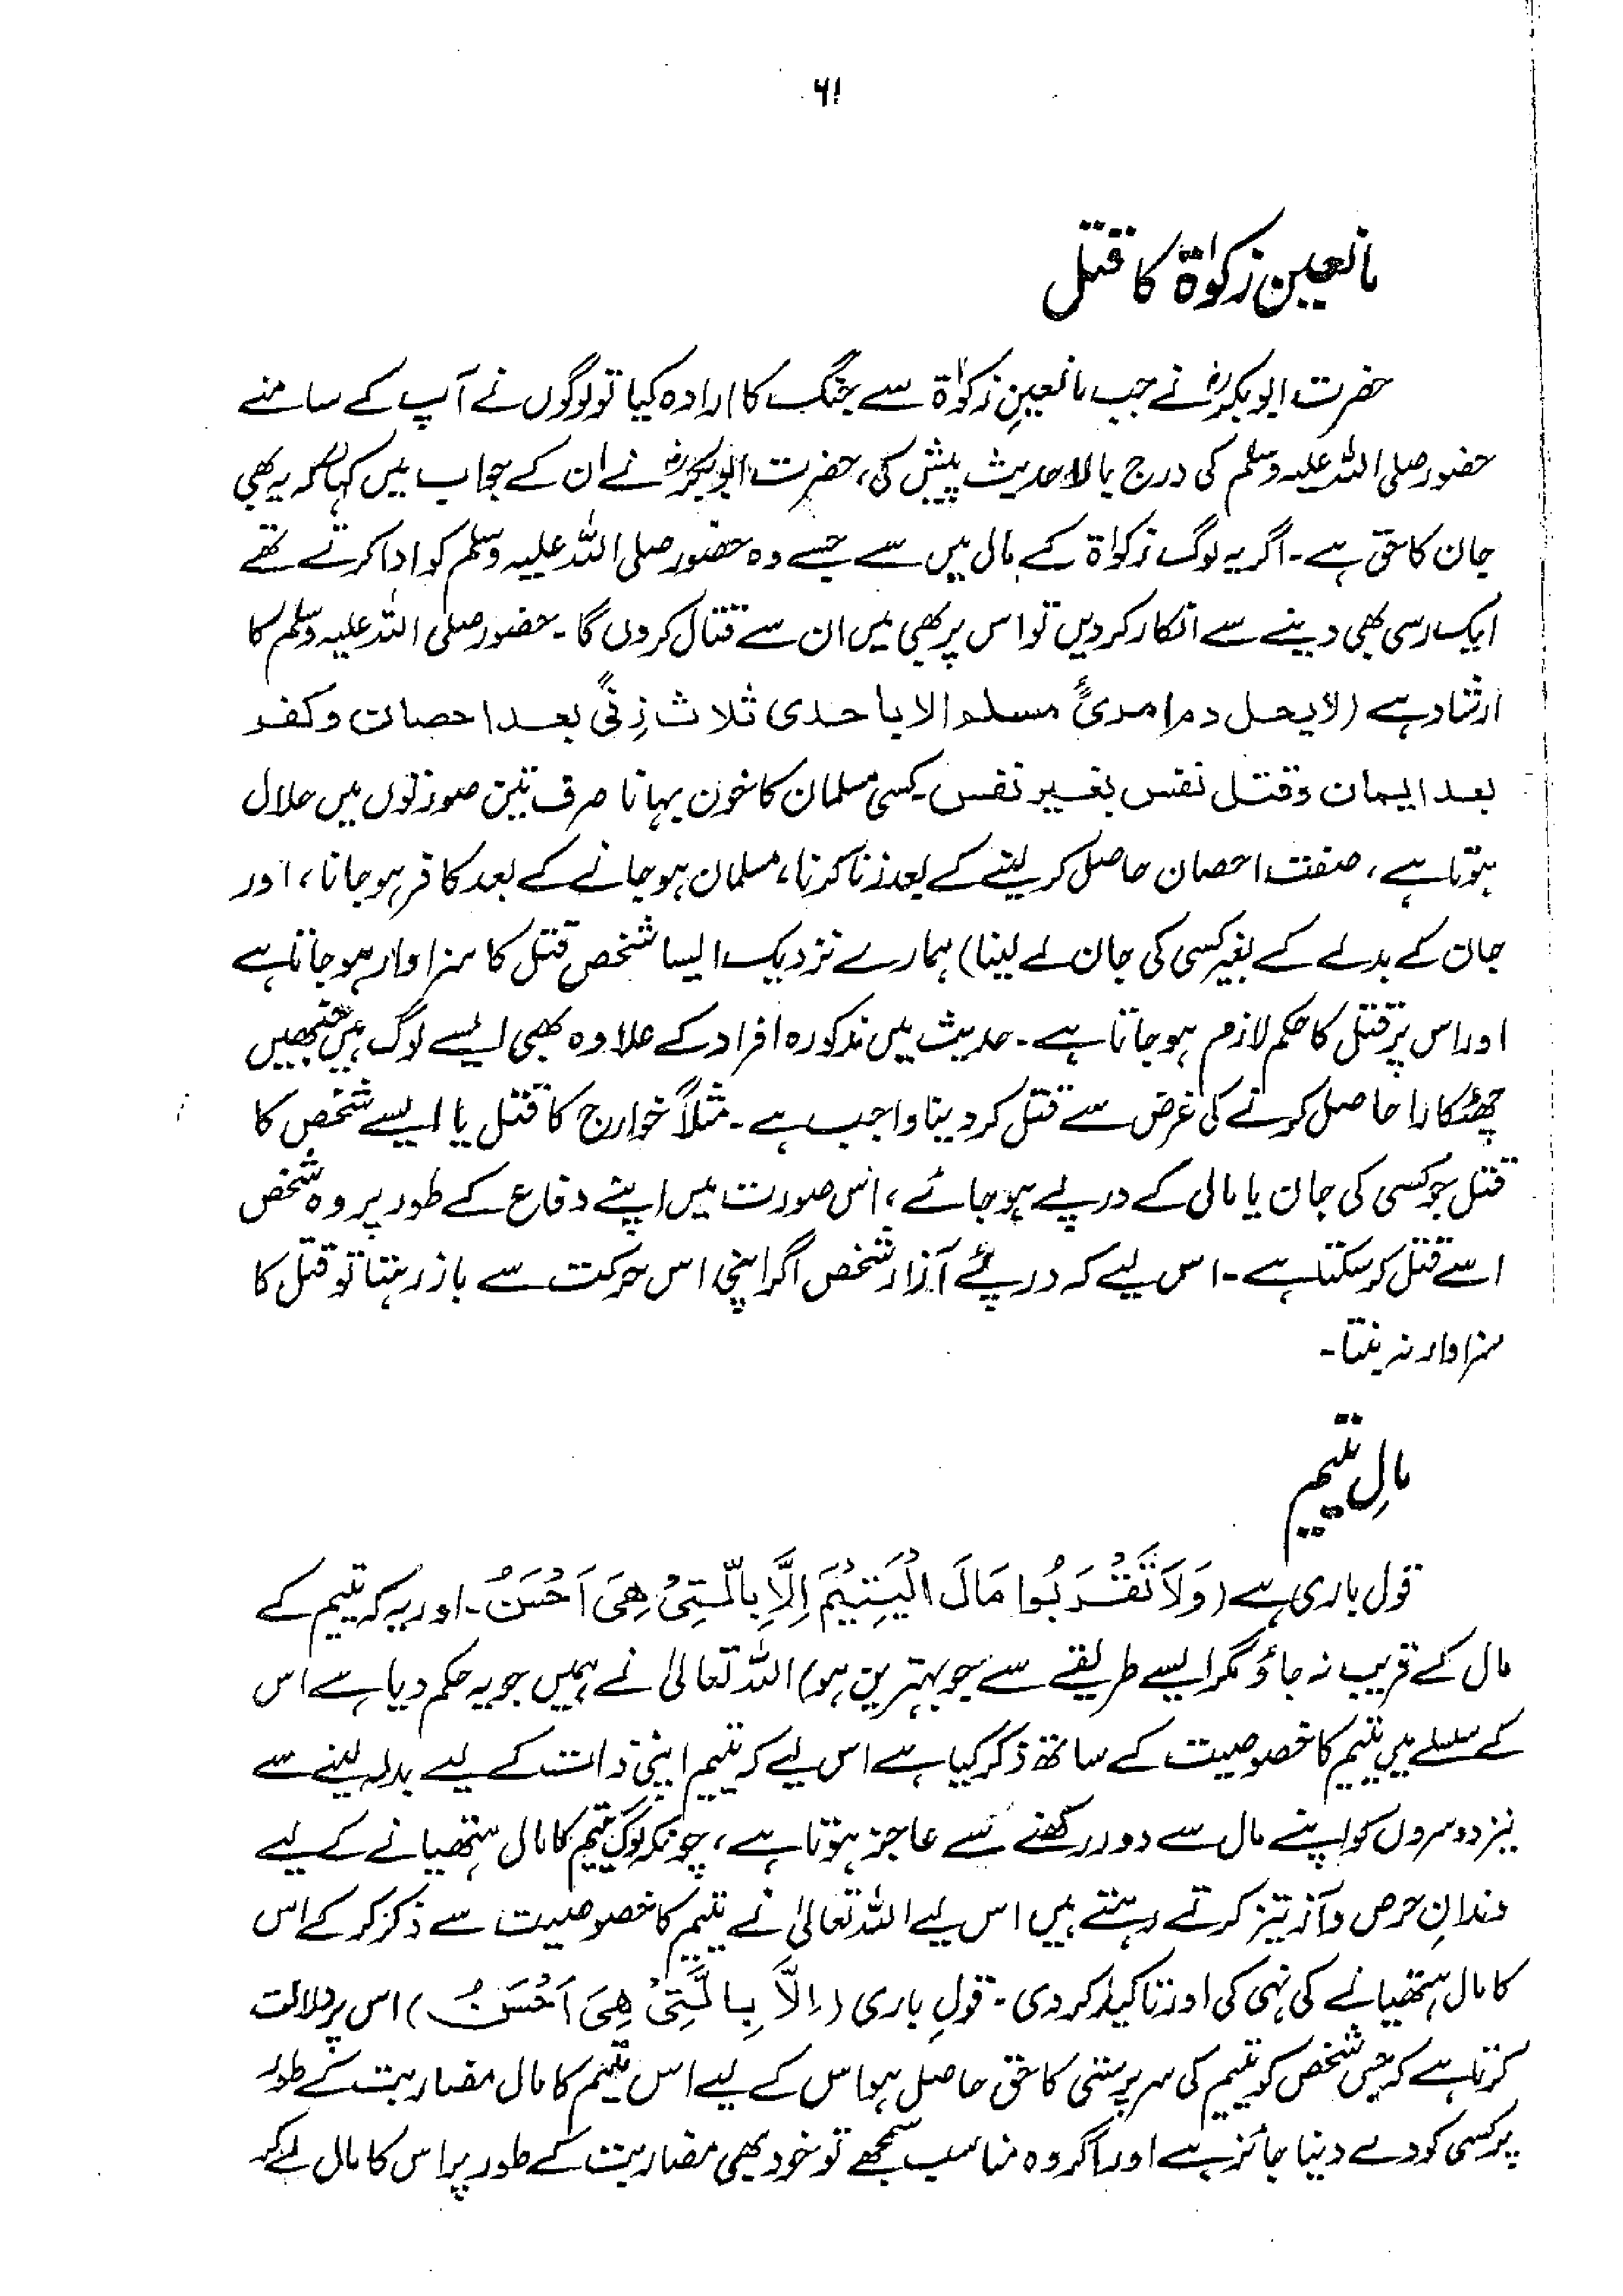 ۶۱
مانعین زکوٰۃ کا قتل
حضرت ابوبکرؓ نے جب مانعینِ زکوٰۃ سے جنگ کا ارادہ کیا تو لوگوں نے آپ کے سامنے
حضور صلی اللہ علیہ وسلم کی درج بالا حدیث پیش کی، حضرت ابوبکرؓ نے ان کے جواب میں کہا کہ یہ بھی
جان کا حق ہے۔ اگر یہ لوگ زکوٰۃ کے مال میں سے جسے وہ حضور صلی اللہ علیہ وسلم کو ادا کرتے تھے
ایک رسی بھی دینے سے انکار کر دیں تو اس پر بھی میں ان سے قتال کروں گا۔ حضور صلی اللہ علیہ وسلم کا
ارشاد ہے (لا یحل دم امرئٍ مسلم الا باحدی ثلاث زنًی بعد احصان و کفر
بعد ایمان و قتل نفس بغیر نفس۔ کسی مسلمان کا خون بہانا صرف تین صورتوں میں حلال
ہوتا ہے، صفت احصان حاصل کر لینے کے بعد زنا کرنا، مسلمان ہو جانے کے بعد کافر ہو جانا، اور
جان کے بدلے کے بغیر کسی کی جان لے لینا) ہمارے نزدیک ایسا شخص قتل کا سزاوار ہو جاتا ہے
اور اس پر قتل کا حکم لازم ہو جاتا ہے۔ حدیث میں مذکورہ افراد کے علاوہ بھی ایسے لوگ ہیں جنھیں
چھٹکارا حاصل کرنے کی غرض سے قتل کر دینا واجب ہے۔ مثلاً خوارج کا قتل یا ایسے شخص کا
قتل جو کسی کی جان یا مال کے درپے ہو جائے، اس صورت میں اپنے دفاع کے طور پر وہ شخص
اسے قتل کر سکتا ہے۔ اس لیے کہ درپئے آزار شخص اگر اپنی اس حرکت سے باز رہتا تو قتل کا
سزاوار نہ بنتا۔
مالِ یتیم
قول باری ہے (وَلَا تَقْرَبُوا مَالَ الْيَتِيْمَ اِلَّا بِالَّتِيْ هِيَ اَحْسَنُ۔ اور یہ کہ یتیم کے
مال کے قریب نہ جاؤ مگر ایسے طریقے سے جو بہترین ہو) اللہ تعالیٰ نے ہمیں جو یہ حکم دیا ہے اس
کے سلسلے میں یتیم کا خصوصیت کے ساتھ ذکر کیا ہے اس لیے کہ یتیم اپنی ذات کے لیے بدلہ لینے سے
نیز دوسروں کو اپنے مال سے دور رکھنے سے عاجز ہوتا ہے، چونکہ لوگ یتیم کا مال ہتھیانے کے لیے
دندانِ حرص و آز تیز کرتے رہتے ہیں اس لیے اللہ تعالیٰ نے یتیم کا خصوصیت سے ذکر کر کے اس
کا مال ہتھیانے کی نہی کی اور تاکید کر دی۔ قولِ باری (اِلَّا بِالَّتِيْ هِيَ اَحْسَنُ) اس پر دلالت
کرتا ہے کہ جس شخص کو یتیم کی سرپرستی کا حق حاصل ہو اس کے لیے اس یتیم کا مال مضاربت کے طور
پر کسی کو دے دینا جائز ہے اور اگر وہ مناسب سمجھے تو خود بھی مضاربت کے طور پر اس کا مال لے کر